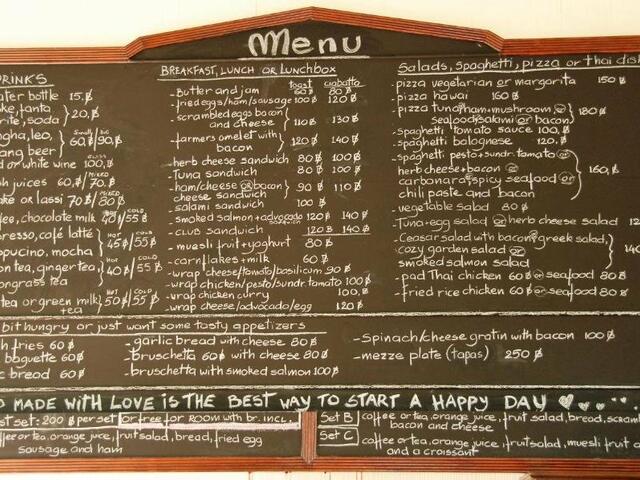 Menu
DRINKS
ater bottle 15.฿
ke, fanta
rite, soda } 20,฿
Small Big
ngha, leo,
ang beer } 60฿/90,฿
GLASS
d or white wine 100,฿
MIXED
sh juices 60,฿/70,฿
MIXED
ake or lassi 70฿/80฿
COLD
fee, chocolate milk 40฿/55฿
HOT COLD
presso, café latte
ppucino, mocha } 45฿/55฿
HOT COLD
on tea, ginger tea
ongrass tea } 40฿/55฿
HOT COLD
tea or green milk tea } 50฿/55฿
BREAKFAST, LUNCH or LUNCHbox
toast ciabatta
-Butter and jam 80฿
-fried eggs/ham/sausage 100฿ 120฿
-scrambled eggs bacon
and cheese } 110฿ 130฿
-farmers omelet with
bacon } 120฿ 140฿
-herb cheese sandwich 80฿ 100฿
-Tuna sandwich 80฿ 100฿
-ham/cheese or bacon
cheese sandwich } 90฿ 110฿
-salami sandwich 100฿
-smoked salmon+advocado sandwich 120฿ 140฿
-club sandwich 120฿ 140฿
-muesli fruit+yoghurt 80฿
-cornflakes+milk 60฿
-wrap cheese/tomato/basilicum 90฿
-wrap chicken/pesto/sundr.tomato 100฿
-wrap chicken curry 100,฿
-wrap cheese/advocado/egg 120฿
Salads, spaghetti, pizza or thai dish
-pizza vegetarian or margarita 150฿
-pizza hawai 160฿
-pizza tuna/ham+mushroom or
seafood/salami or bacon } 180฿
-spaghetti tomato sauce 100,฿
-spaghetti bolognese 120,฿
-spaghetti pesto+sundr.tomato or
herb cheese+bacon or
carbonara/spicy seafood or
chili paste and bacon } 160,฿
-vegetable salad 80฿
-Tuna-egg salad or herb cheese salad 12
-Ceasar salad with bacon/greek salad,
cozy garden salad or
smoked salmon salad } 140
-pad Thai chicken 60฿ or seafood 80฿
-fried rice chicken 60฿ or seafood 80฿
bit hungry or just want some tasty appetizers
h fries 60฿
baguette 60฿
c bread 60฿
-garlic bread with cheese 80฿
-bruschetta 60฿ with cheese 80฿
-bruschetta with smoked salmon 100฿
-Spinach/cheese gratin with bacon 100฿
-mezze plate (tapas) 250฿
D MADE WITH LOVE IS THE BEST WAY TO START A HAPPY DAY
st set: 200฿ per set or free for ROOM with br. incl.
ffee or tea, orange juice, fruit salad, bread, fried egg
sausage and ham
Set B coffee or tea, orange juice, fruit salad, bread, scramb
bacon and cheese
Set C coffee or tea, orange juice, fruit salad, muesli fruit a
and a croissant